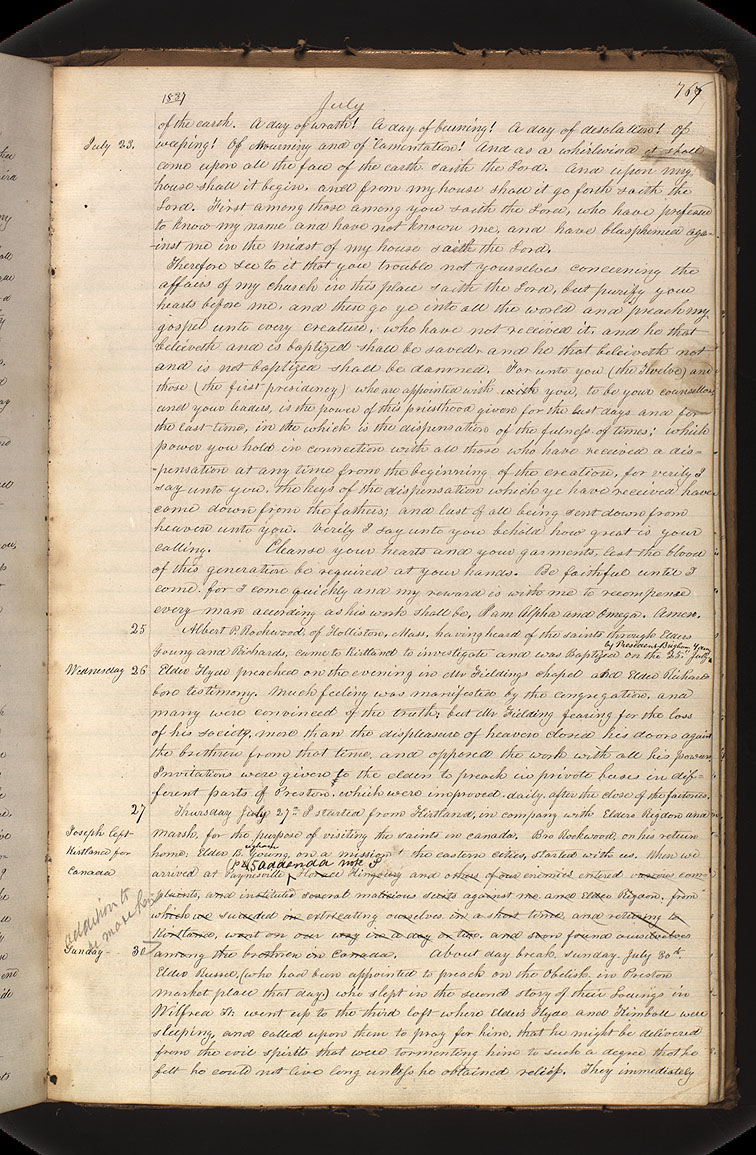 1837 July 767
of the earth. A day of wrath! A day of burning! A day of desolation! Of
July 23. weeping! Of Mourning and of lamentation! And as a whirlwind it shall
come upon all the face of the earth saith the Lord. And upon my
house shall it begin, and from my house shall it go forth saith the
Lord. First among those among you saith the Lord, who have professed
to know my name and have not known me, and have blasphemed aga-
-inst me in the midst of my house saith the Lord.
Therefore see to it that you trouble not yourselves concerning the
affairs of my church in this place saith the Lord, but purify your
hearts before me, and then go ye into all the world and preach my
gospel unto every creature, who have not received it, and he that
beleiveth and is baptized shall be saved, and he that beleiveth not
and is not baptized shall be damned. For unto you (the Twelve) and
those (the first presidency) who are appointed with with you, to be your counsellors
and your leaders, is the power of this priesthood given for the last days and for
the last time, in the which is the dispensation of the fulness of times; which
power you hold in connection with all those who have received a dis-
-pensation at any time from the beginning of the creation, for verily I
say unto you, the keys of the dispensation which ye have received have
came down from the fathers; and last of all being sent down from
heaven unto you. Verily I say unto you behold how great is your
calling. Cleanse your hearts and your garments, lest the blood
of this generation be required at your hands. Be faithful until I
come, for I come quickly and my reward is with me to recompense
every man according as his work shall be, I am Alpha and Omega. Amen.
25 Albert P. Rockwood, of Holliston, Mass, having heard of the saints through Elders
Young and Richards, came to Kirtland to investigate and was Baptized on the 25th July
by President Brigham Young
Wednesday 26 Elder Hyde preached on the evening in Mr Fieldings chapel and Elder Richards
bore testimony. Much feeling was manifested by the congregation, and
many were convinced of the truth; but Mr Fielding fearing for the loss
of his society, more than the displeasure of heaven closed his doors against
the brethren from that time, and opposed the work with all his powers
Invitations were given to the elders to preach in private houses in dif-
ferent parts of Preston, which were improved daily, after the close of the factories.
27 Thursday July 27th I started from Kirtland, in company with Elders Rigdon and
Joseph left Marsh, for the purpose of visiting the saints in canada. Bro Rockwood, on his return
Kirtland for home, Elder B. Young, on a mission the eastern cities, started with us. When we
righam
addenda note
Canada arrived at Paynsville Horace Kingsbury and others of our enemies entered com-
plaints, and instituted several malicious suits against me and Elder Rigdon, from
which we suceeded in extricating ourselves in a short time, and returning to
addition to
Kirtland, went on our way in a day or two, and soon found ourselves
Sunday 30 among the brethren in Canada. About day break, sunday July 30th
Elder Russel, (who had been appointed to preach on the Obelisk in Preston
market place that day) who slept in the second story of their Lodgings in
Wilfred St. went up to the third loft where Elders Hyde and Kimball were
sleeping, and called upon them to pray for him, that he might be delivered
from the evil spirits that were tormenting him to such a degree that he
felt he could not live long unless he obtained relief. They immediately